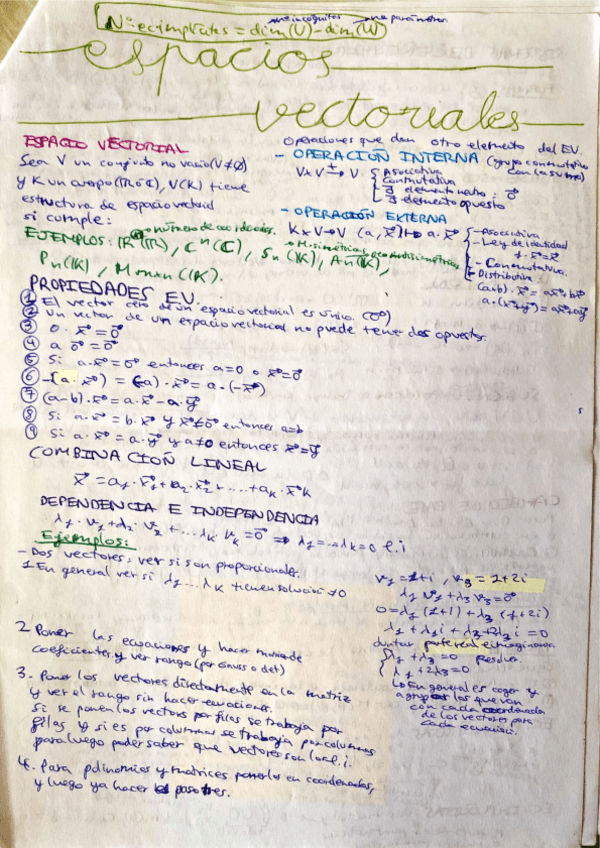 nº incógnitas nº parámetros
Nº ec implícitas = dim(V) - dim(U)
espacios
vectoriales
ESPACIO VECTORIAL
Sea V un conjunto no vacío (V≠∅)
y K un cuerpo (ℝ o ℂ), V(K) tiene
estructura de espacio vectorial
si cumple:
Operaciones que dan otro elemento del EV.
- OPERACIÓN INTERNA (grupo conmutativo con la suma)
V×V →⁺ V
Asociativa
Conmutativa
∃ elemento neutro: 0⃗
∃ elemento opuesto
- OPERACIÓN EXTERNA
K×V→V (a, x⃗)↦ a·x⃗
- Asociativa
- Ley de identidad
1·x⃗=x⃗
- Conmutativa.
- Distributiva
(a+b)·x⃗ = ax⃗+bx⃗
a·(x⃗+y⃗) = ax⃗+ay⃗
→ número de coordenadas.
EJEMPLOS: ℝⁿ(ℝ), ℂⁿ(ℂ), Sn(K), An(K),
Pn(K), Mmxn(K).
PROPIEDADES EV.
① El vector cero de un espacio vectorial es único. (0⃗)
② Un vector de un espacio vectorial no puede tener dos opuestos.
③ 0·x⃗ = 0⃗
④ a 0⃗ = 0⃗
⑤ Si a·x⃗=0⃗ entonces a=0 o x⃗=0⃗
⑥ -(a·x⃗) = (-a)·x⃗ = a·(-x⃗)
⑦ (a-b)·x⃗ = a·x⃗ - a·y⃗
⑧ Si a·x⃗ = b·x⃗ y x⃗≠0⃗ entonces a=b
⑨ Si a·x⃗ = a·y⃗ y a≠0 entonces x⃗=y⃗
COMBINACIÓN LINEAL
x⃗ = a₁·x⃗₁ + a₂·x⃗₂ + ... + aₖ·x⃗ₖ
DEPENDENCIA E INDEPENDENCIA
λ₁·v₁+λ₂·v₂+...λₖ vₖ=0⃗ ⇒ λ₁=...λₖ=0 l.i
Ejemplos:
- Dos vectores: ver si son proporcionales.
1 En general ver si λ₁...λₖ tienen solución ≠0
v₁=1+i, v₃=1+2i
λ₁v₁+λ₃v₃=0⃗
0=λ₁(1+i)+λ₃(1+2i)
λ₁+λ₁i+λ₃+2λ₃i=0
Juntar parte real e imaginaria
λ₁+λ₃=0 Resolver
λ₁+2λ₃=0
↳ En general es coger y
agrupar los que van
con cada coordenada
de los vectores para
cada ecuación.
2 Poner las ecuaciones y hacer matriz de
coeficientes y ver rango (por Gauss o det)
3. Poner los vectores directamente en la matriz
y ver el rango sin hacer ecuaciones.
Si se ponen los vectores por filas se trabaja por
filas y si es por columnas se trabaja por columnas
para luego poder saber que vectores son los l.i.
4. Para polinomios y matrices ponerlos en coordenadas,
y luego ya hacer paso tres.